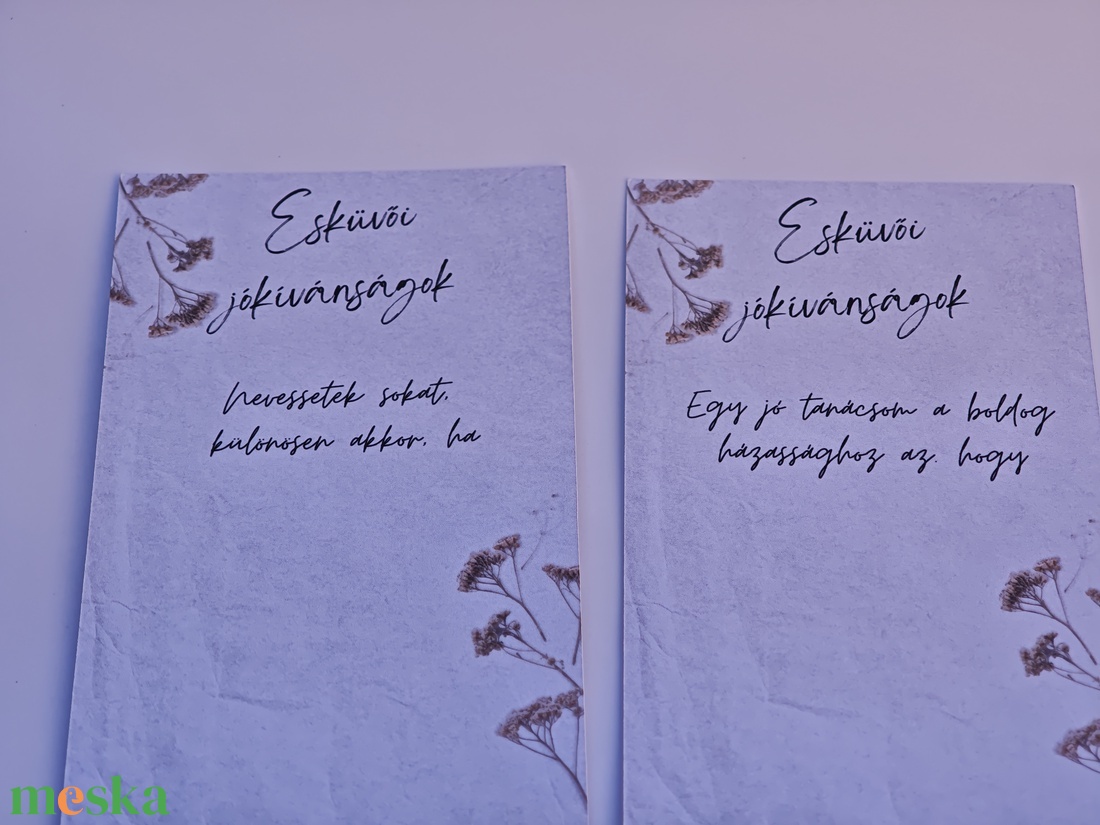 Esküvői
jókívánságok
Nevessetek sokat,
különösen akkor, ha
Esküvői
jókívánságok
Egy jó tanácsom a boldog
házassághoz az, hogy
meska